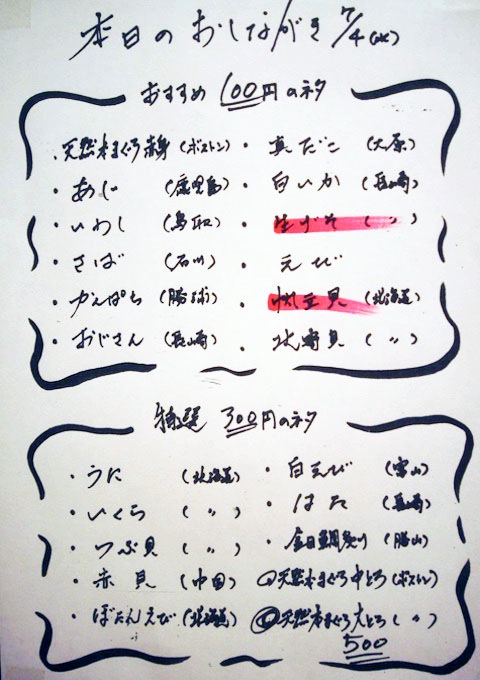 本日のおしながき 7/4(水)
おすすめ 100円のネタ
・天然本まぐろ赤身(ボストン)
・あじ (鹿児島)
・いわし (鳥取)
・さば (石川)
・かんぱち (勝浦)
・おじさん (長崎)
・真だこ (大原)
・白いか (長崎)
・生げそ (〃)
・えび
・帆立貝 (北海道)
・北寄貝 (〃)
特選 300円のネタ
・うに (北海道)
・いくら (〃)
・つぶ貝 (〃)
・赤貝 (中国)
・ぼたんえび (北海道)
・白えび (富山)
・はた (長崎)
・金目鯛炙り (勝山)
◎天然本まぐろ中とろ(ボストン)
◎天然本まぐろ大とろ(〃)
500